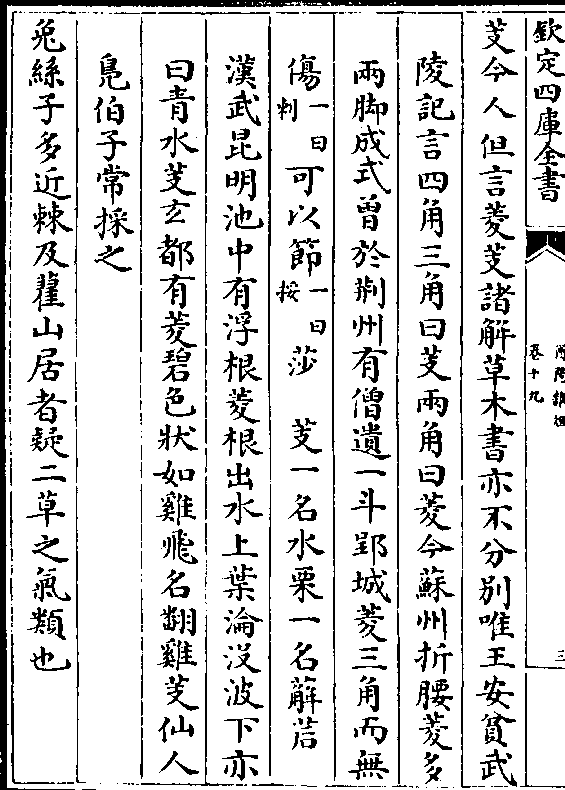 欽定四庫全書
卷十九
三
芰今人但言菱芰諸解草木書亦不分别唯王安貧武
陵記言四角三角曰芰兩角曰菱今蘇州折腰菱多
兩脚成式曾於荆州有僧遺一斗郢城菱三角而無
傷一曰刺可以節一曰挼莎　芰一名水栗一名薢茩
漢武昆明池中有浮根菱根出水上葉淪沒波下亦
曰青水芰玄都有菱碧色狀如雞飛名翻雞芰仙人
鳧伯子常採之
兔絲子多近棘及藋山居者疑二草之氣類也